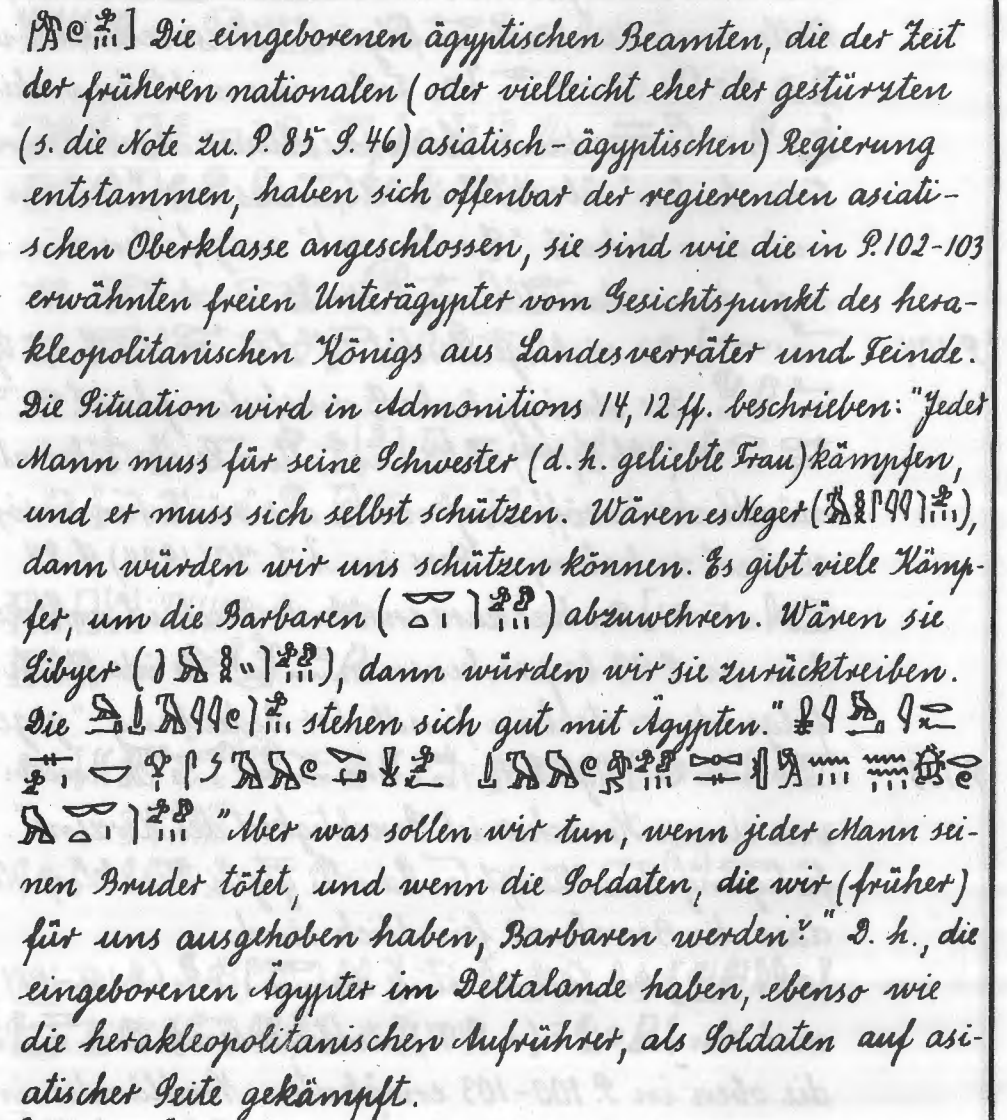 ] Die eingeborenen ägyptischen Beamten, die der Zeit
der früheren nationalen (oder vielleicht eher der gestürzten
(s. die Note zu. P. 85 S. 46) asiatisch-ägyptischen) Regierung
entstammen, haben sich offenbar der regierenden asiati-
schen Oberklasse angeschlossen, sie sind wie die in P. 102-103
erwähnten freien Unterägypter vom Gesichtspunkt des hera-
kleopolitanischen Königs aus Landesverräter und Feinde.
Die Situation wird in Admonitions 14, 12 ff. beschrieben: "Jeder
Mann muss für seine Schwester (d. h. geliebte Frau) kämpfen,
und er muss sich selbst schützen. Wären es Neger (),
dann würden wir uns schützen können. Es gibt viele Kämp-
fer, um die Barbaren () abzuwehren. Wären sie
Libyer (), dann würden wir sie zurücktreiben.
Die stehen sich gut mit Ägypten."
"Aber was sollen wir tun, wenn jeder Mann sei-
nen Bruder tötet, und wenn die Soldaten, die wir (früher)
für uns ausgehoben haben, Barbaren werden?" D. h., die
eingeborenen Ägypter im Deltalande haben, ebenso wie
die herakleopolitanischen Aufrührer, als Soldaten auf asi-
atischer Seite gekämpft.